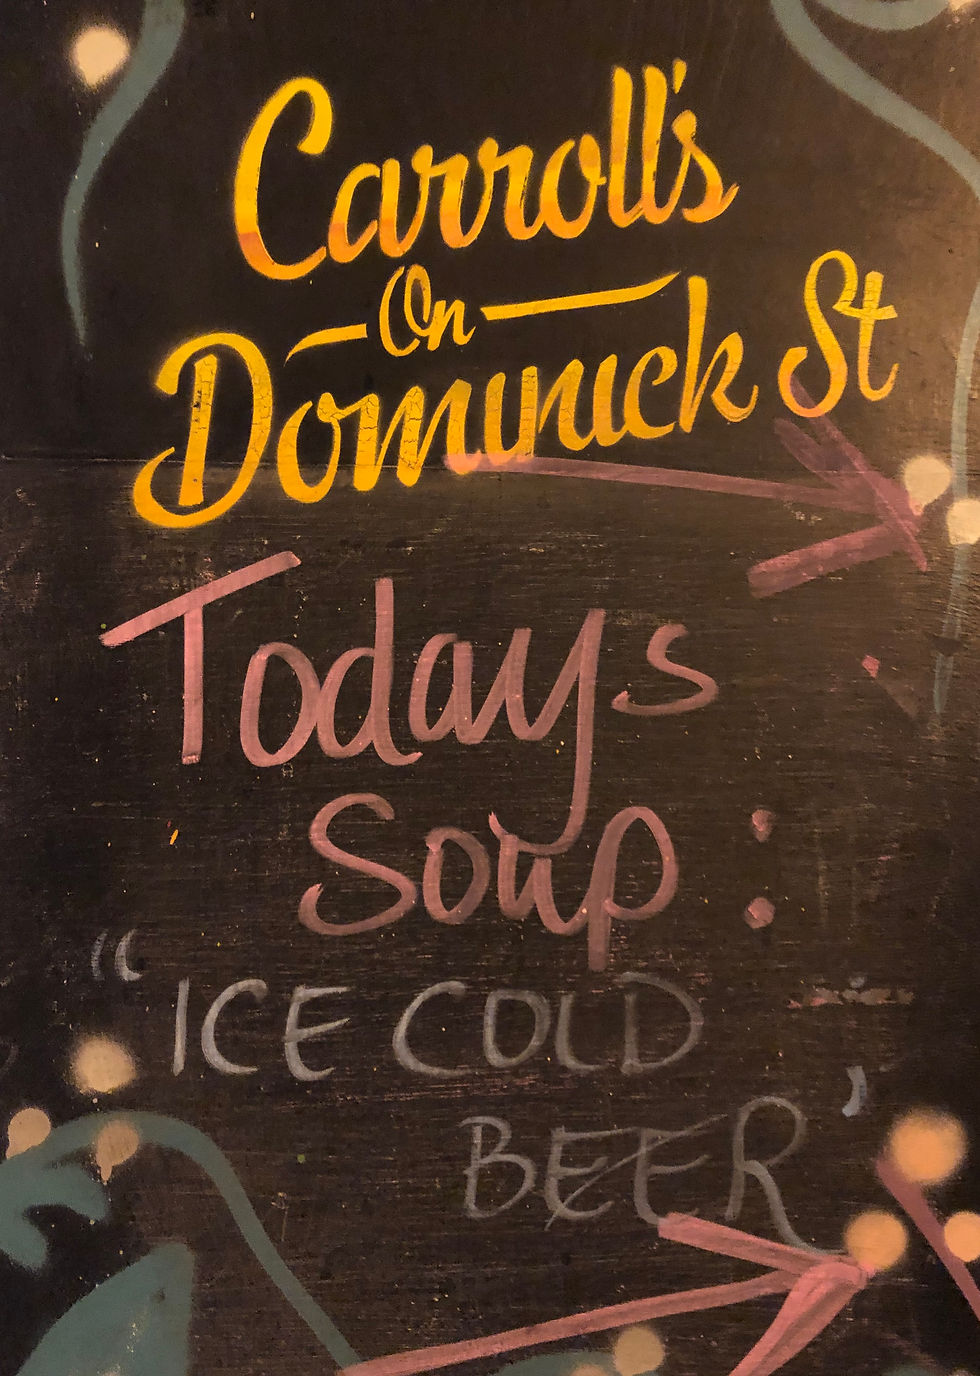 Carroll's
On
Dominick St
Todays
Soup :
“ICE COLD
BEER’